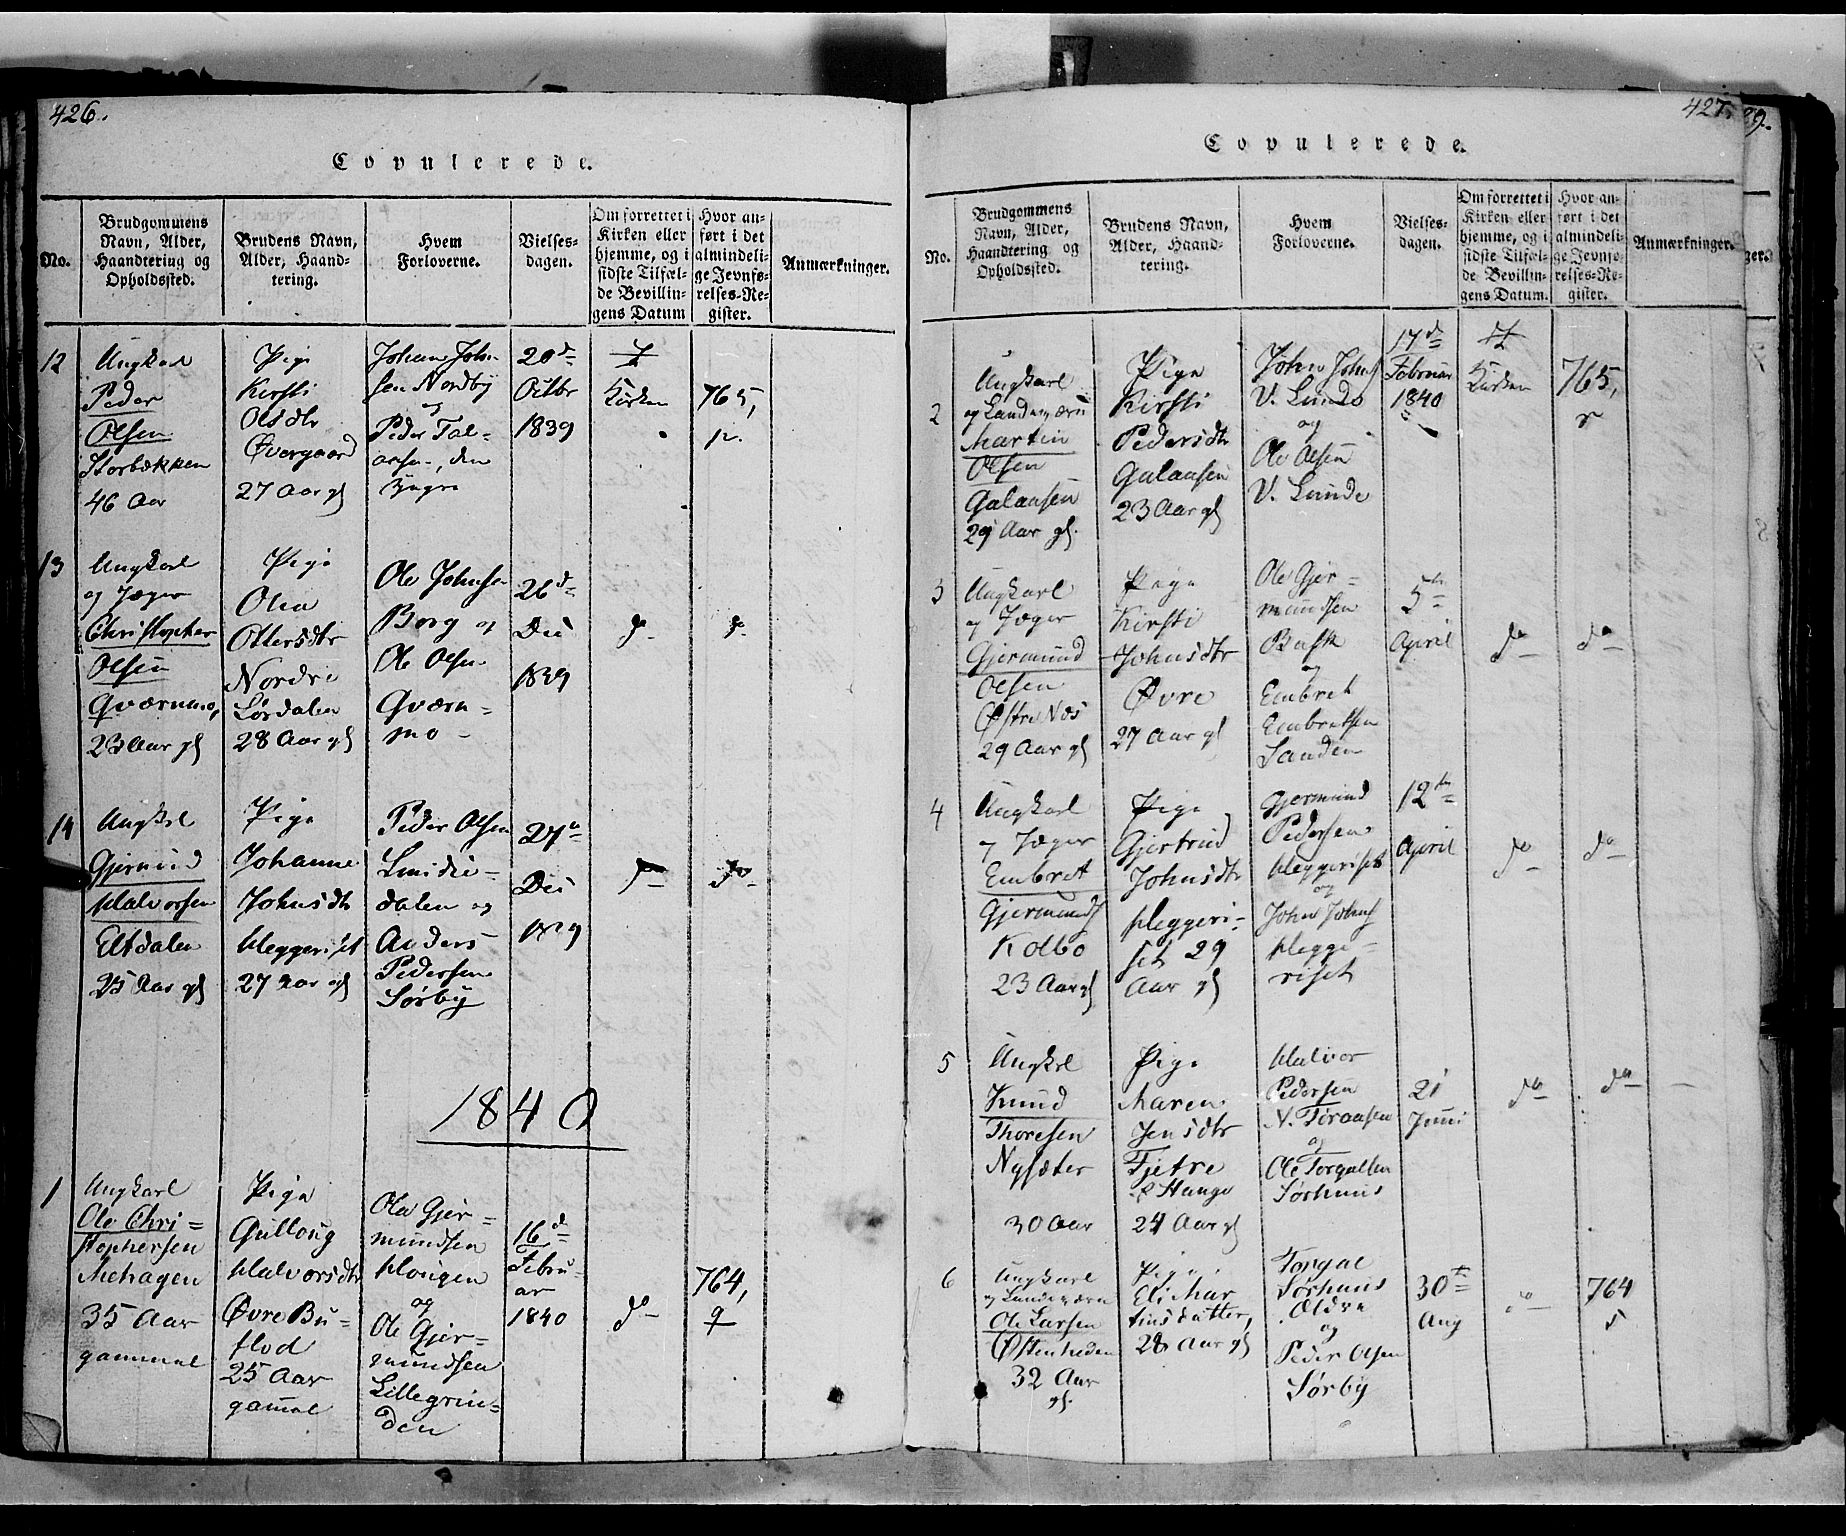 426.
Copulerede.
No.
Brudgommens Navn, Alder, Haandtering og Opholdssted.
Brudens Navn, Alder, Haandtering.
Hvem Forloverne.
Vielsesdagen.
Om forrettet i Kirken eller hjemme, og i sidste Tilfælde Bevillingens Datum
Hvor anført i det almindelige Jevnførelses-Register.
Anmærkninger.
12
Ungkarl
Peder
Olsen
Storbækken
46 Aar
Pige
Kirsti
Olsdtr
Øvergaard
27 Aar gl
Johan John-
sen Nordby
og
Peder Tol-
, den
yngre
20d
Octbr
1839
I
Kirken
765,
p.
13
Ungkarl
og Jæger
Christopher
Olsen
Qværnmo,
23 Aar gl
Pige
Olea
Ottersdtr
Nordre
Lørdalen
28 Aar gl
Ole Johnsen
Borg og
Ole Olsen
Qværn-
mo -
26d
Dec
1839
do
do
14
Ungkrl
Gjermund
Halvorsen
Eltdalen
25 Aar gl
Pige
Johanne
Johnsdtr
Heggeriset
27 Aar gl
Peder Olsen
Linde-
dalen og
Anders
Pedersen
Sørby
27
Dec
1839
do
do
1840
1
Ungkarl
Ole Chri=
stophersen
Mehagen
35 Aar
gammel
Pige
Gulloug
Halvorsdtr
Øvre Bu-
flod
25 Aar
gammel
Ole Gjer-
mundsen
Hougen
og
Ole Gjer-
mundsen
Lillegrin-
den
16d
Febru-
ar
1840
do
764,
q
427.
29.
Copulerede.
No.
Brudgommens Navn, Alder, Haandtering og Opholdssted.
Brudens Navn, Alder, Haandtering.
Hvem Forloverne.
Vielsesdagen.
Om forrettet i Kirken eller hjemme, og i sidste Tilfælde Bevillingens Datum.
Hvor anført i det almindelige Jevnførelses-Register.
Anmærkninger.
2
Ungkarl
og Landeværn
Martin
Olsen
Galaasen
29 Aar gl.
Pige
Kirsti
Pedersdtr
Galaasen
23 Aar gl
John Johns
V. Lunde
og
Ole Olsen
V. Lunde
17d
Februar
1840
I
Kirken
765,
r
3
Ungkarl
og Jæger
Gjermund
Olsen
Østre Næs
29 Aar gl
Pige
Kirsti
Johnsdtr
Øvre
27 Aar gl
Ole Gjer-
mundsen
Bask
og
Embret
Embretsen
Sanden
5te
April
do
do
4
Ungkarl
og Jæger
Embret
Gjermunds
Kolbo
23 Aar gl
Pige
Gjertrud
Johnsdtr
Heggeri-
set 29
Aar gl
Gjermund
Pedersen
Heggeriset
og
John Johns
Hegge-
riset
12te
April
do
do
5
Ungkrl
Knud
Thoresen
Nysæter
30 Aar
Pige
Maren
Jensdtr
Tjetre
Stange
24 Aar gl
Halvor
Pedersen
N. Toraasen
og
Ole Torgalsen
Sørhuus
21
Juni
do
do
6
Ungkarl
og Landeværn
Ole Larsen
Østenheden
32 Aar
gl.
Pige
Eli Mar
tinsdatter,
28 Aar gl
Torgal
Sørhuus
Oldre
og
Peder Olsen
Sørby
30te
Aug
do
764
s